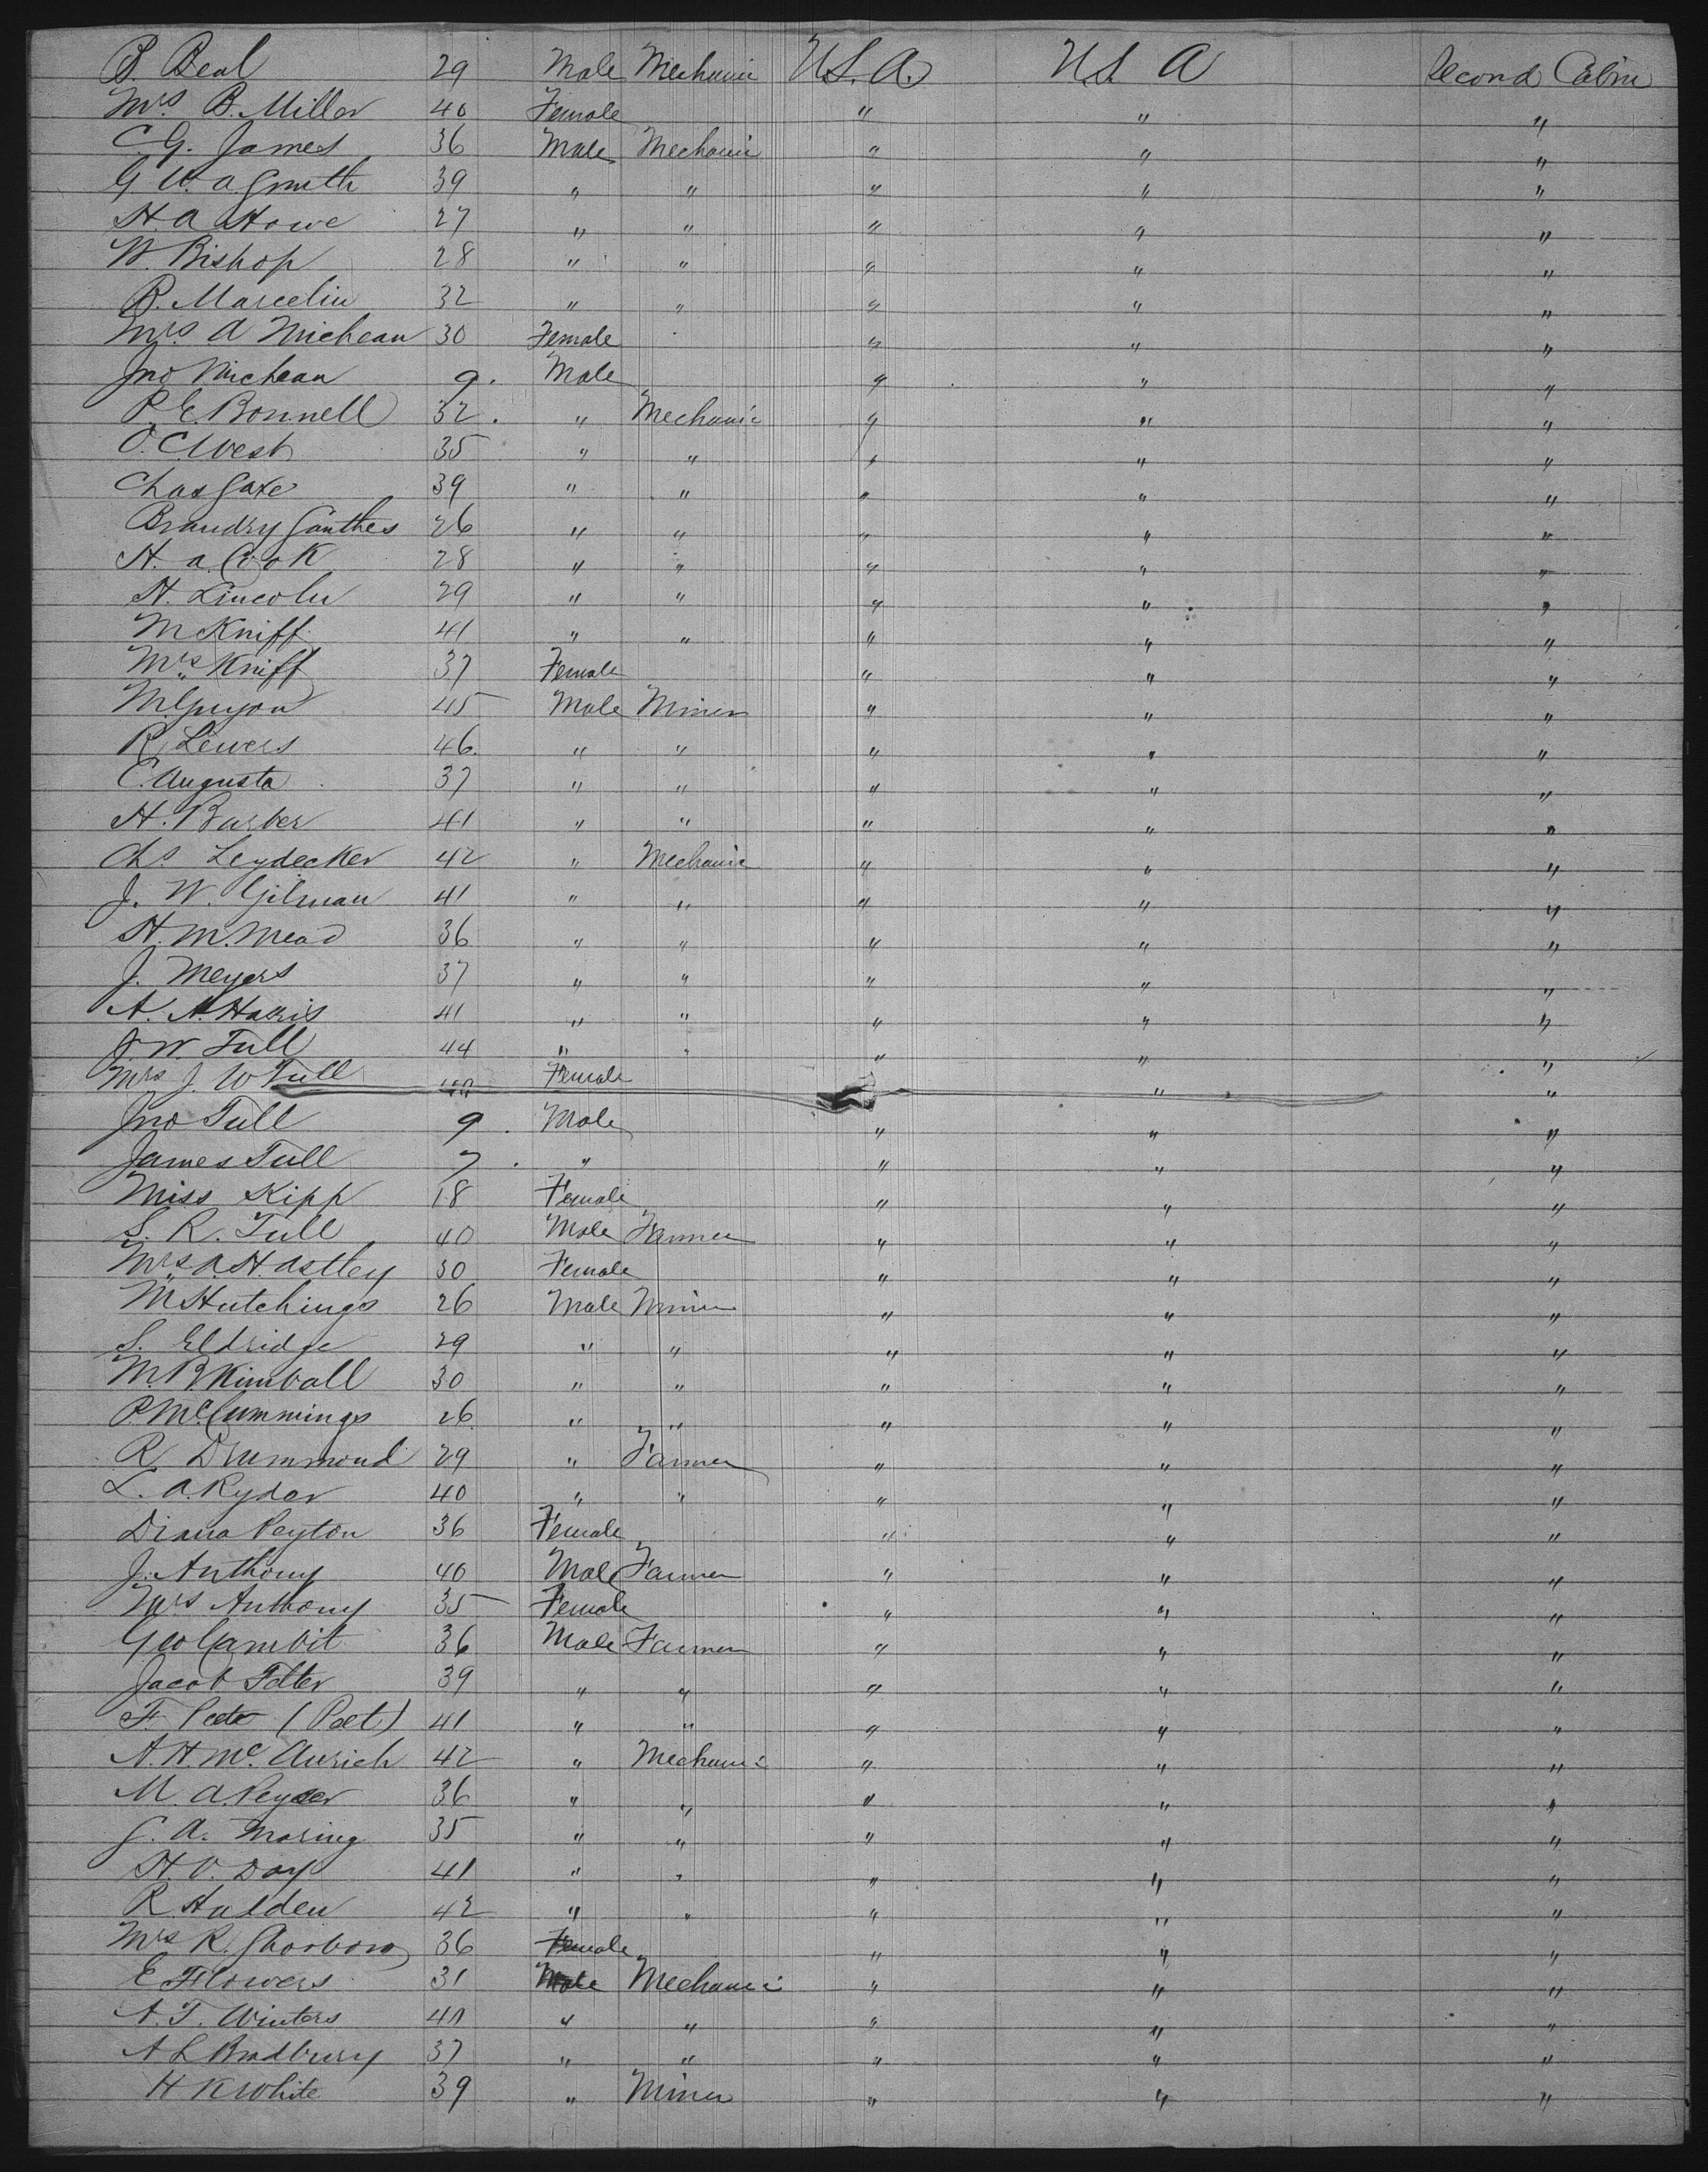 B. Beal 29 Male Mechanic U.S.A. U.S. A Second Cabin
Mrs B. Miller 40 Female " " "
C. G. James 36 Male Mechanic " " "
G W. A. Smith 39 " " " " "
H. A. Howe 27 " " " " "
W. Bishop 28 " " " " "
B. Marcelin 32 " " " " "
Mrs. A Micheau 30 Female " " "
Jno Micheau 9. Male " " "
P. E. Bonnell 32. " Mechanic " " "
O. C. West 35 " " " " "
Chas Saxe 39 " " " " "
Beaudry Gonthes 26 " " " " "
H. A. Cook 28 " " " " "
H. Lincoln 29 " " " " "
M Kniff 41 " " " " "
Mrs Kniff 37 Female " " "
M. Guyon 45 Male Miner " " "
R. Lewers 46. " " " " "
C. Augusta 37 " " " " "
H. Barber 41 " " " " "
Chs Leydecker 42 " Mechanic " " "
J. W. Gilman 41 " " " " "
H. M. Mead 36 " " " " "
J. Meyers 37 " " " " "
A. N. Harris 41 " " " " "
J. W Tull 44 " " " " "
Mrs J. W Tull 40 Female " "
Jno Tull 9. Male " " "
James Tull 7. " " " "
Miss Kipp 18 Female " " "
S. R. Tull 40 Male Farmer " " "
Mrs A. H. Astley 30 Female " " "
M Hutchings 26 Male Miner " " "
S. Eldridge 29 " " " " "
M. B. Kimball 30 " " " " "
P. McCummings 26 " " " " "
R. Drummond 29 " Farmer " " "
L. A. Ryder 40 " " " " "
Diana Peyton 36 Female " " "
J. Anthony 40 Male Farmer " " "
Mrs Anthony 35 Female " " "
Geo Gambit 36 Male Farmer " " "
Jacob Felter 39 " " " " "
F. Peet (Peet) 41 " " " " "
A. H. Mc. Aurich 42 " Mechanic " " "
M. A. Peyser 36 " " " " "
G. A. Moring 35 " " " " "
H. O. Day 41 " " " " "
R. Halden 42 " " " " "
Mrs R. 36 Female " " "
E Flowers 31 Male Mechanic " " "
A. T. Winters 40 " " " " "
A L Bradbury 37 " " " " "
H K White 39 " Miner " " "